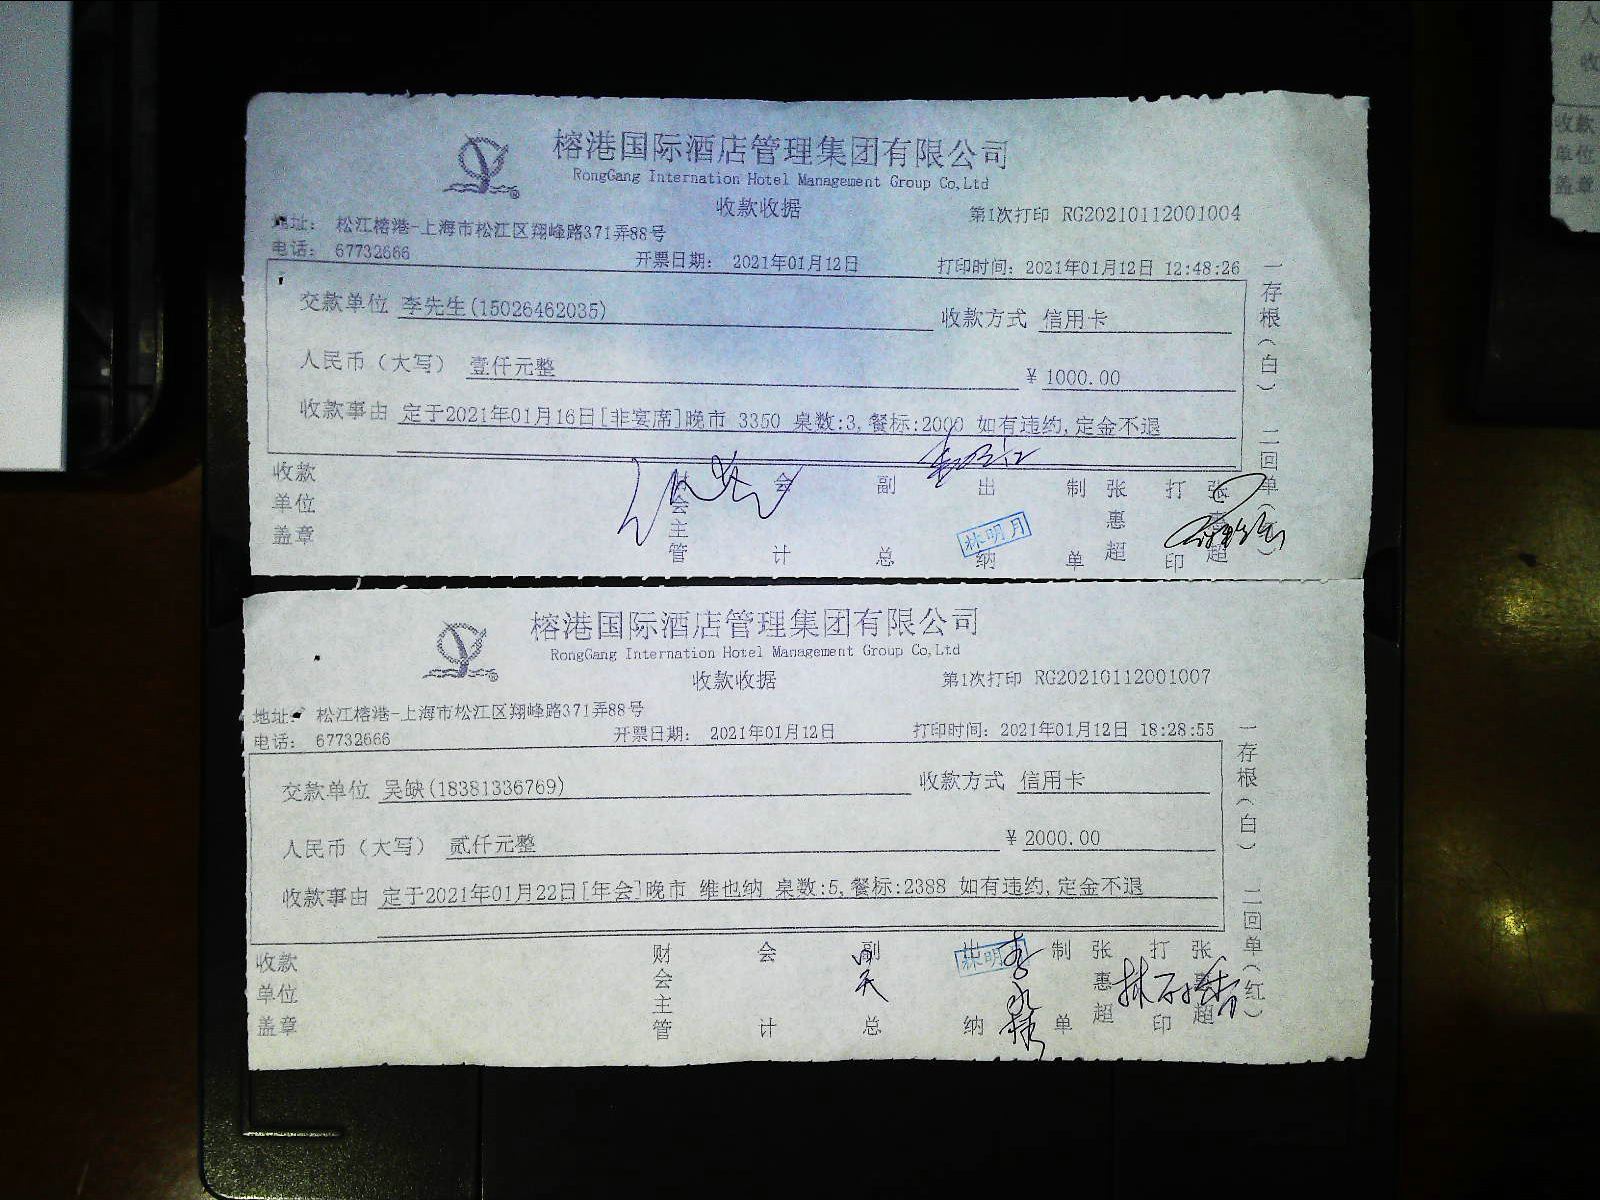 榕港国际酒店管理集团有限公司
RongGang Internation Hotel Management Group Co,Ltd
收款收据
第1次打印 RG20210112001004
地址： 松江榕港-上海市松江区翔峰路371弄88号
电话： 67732666
开票日期： 2021年01月12日
打印时间：2021年01月12日 12:48:26
交款单位 李先生(15026462035)
收款方式 信用卡
人民币（大写） 壹仟元整
¥ 1000.00
收款事由 定于2021年01月16日[非宴席]晚市 3350 桌数:3,餐标:2000 如有违约,定金不退
收款单位盖章
财会主管
会计
副总
出纳
林明月
制单
张惠超
打印
张惠超
一存根（白） 二回单（红）
榕港国际酒店管理集团有限公司
RongGang Internation Hotel Management Group Co,Ltd
收款收据
第1次打印 RG20210112001007
地址： 松江榕港-上海市松江区翔峰路371弄88号
电话： 67732666
开票日期： 2021年01月12日
打印时间：2021年01月12日 18:28:55
交款单位 吴缺(18381336769)
收款方式 信用卡
人民币（大写） 贰仟元整
¥ 2000.00
收款事由 定于2021年01月22日[年会]晚市 维也纳 桌数:5,餐标:2388 如有违约,定金不退
收款单位盖章
财会主管
会计
副总
出纳
林明月
制单
张惠超
打印
张惠超
一存根（白） 二回单（红）
收款
单位
盖章